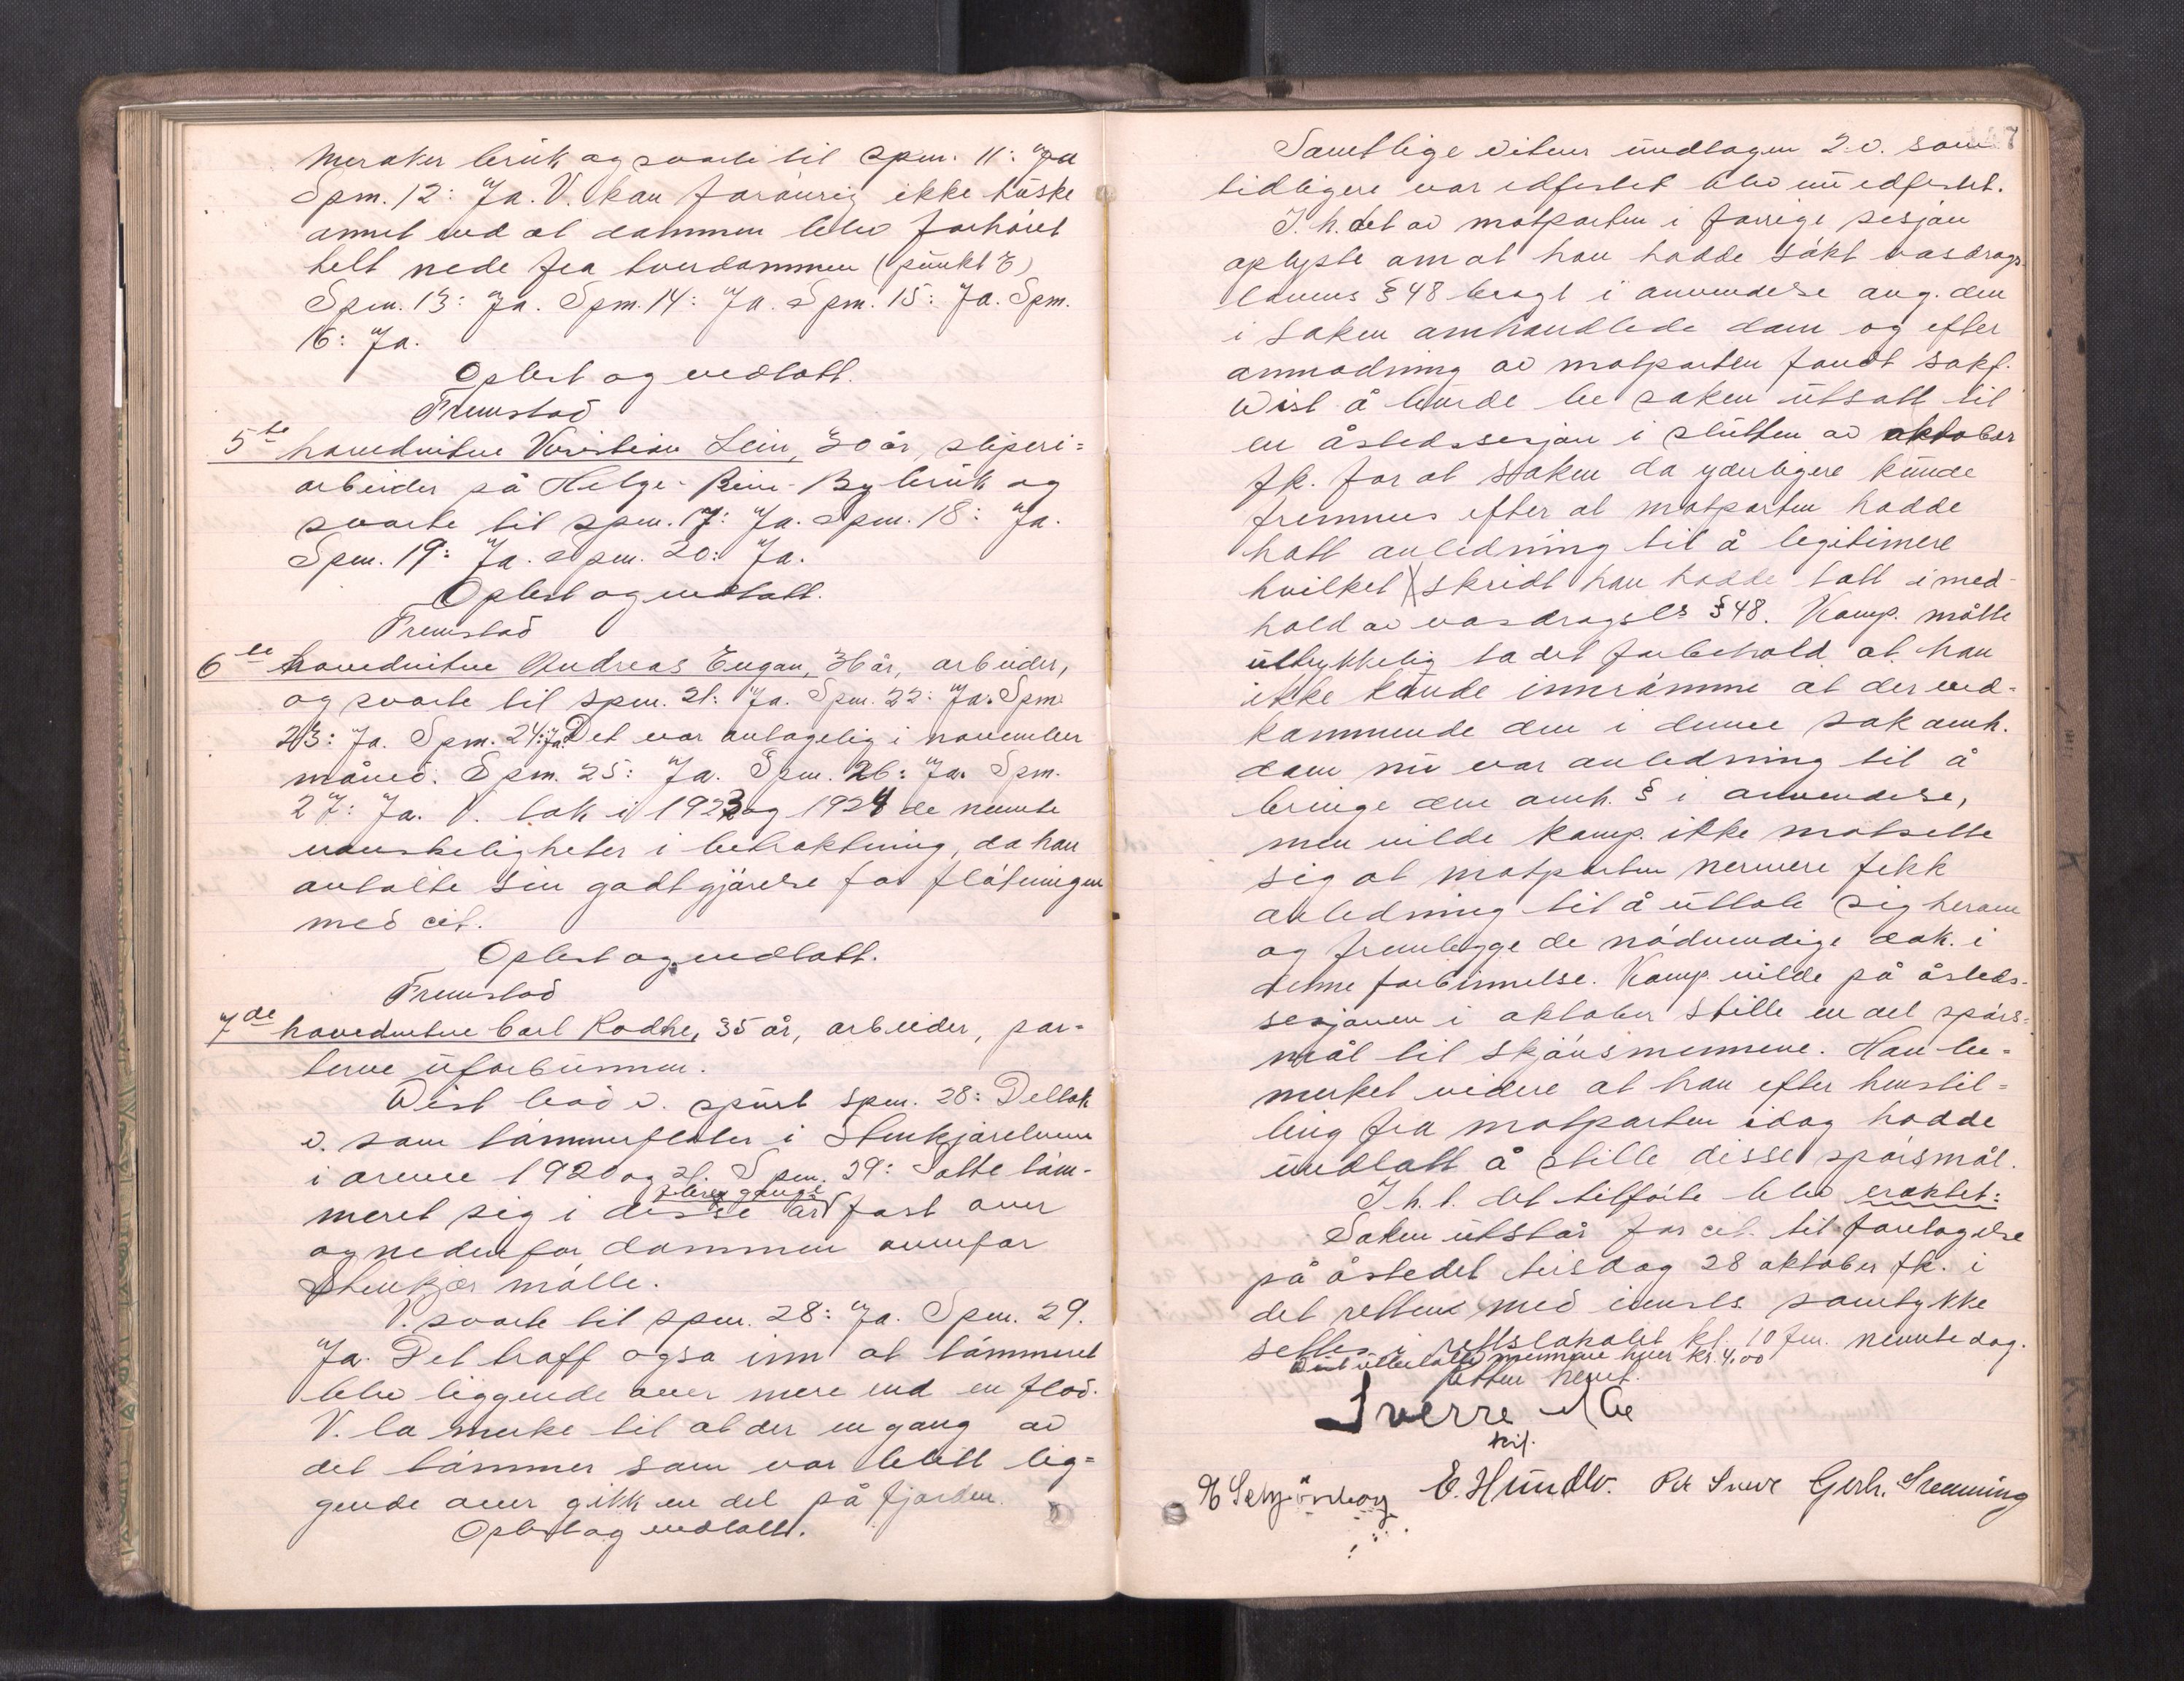 Meraker bruk og svarte til spm. 11: Ja
Spm. 12: Ja. V. kan forøvrig ikke huske
annet end at dammen blev forhøiet
helt nede fra tverdammen (punkt E)
Spm. 13: Ja. Spm. 14: Ja. Spm. 15: Ja. Spm.
16: Ja.
Oplest og vedtatt.
Fremstod
5te hovedvitne Kristian Lein, 30 år, sliperi=
arbeider på Helge-Rein-By bruk og
svarte til spm. 17: Ja. Spm. 18: Ja.
Spm. 19: Ja. Spm. 20: Ja.
Oplest og vedtatt.
Fremstod
6te hovedvitne Andreas Engan, 36 år, arbeider,
og svarte til spm. 21: Ja. Spm. 22: Ja. Spm
23: Ja. Spm. 24: Ja. Det var antagelig i november
måned. Spm. 25: Ja. Spm. 26: Ja. Spm.
27: Ja. V. tok i 1923 og 1924 de nevnte
vanskeligheter i betraktning, da han
avtalte sin godtgjørelse for fløtningen
med cit.
Oplest og vedtatt.
Fremstod
7de hovedvitne Carl Rodhe, 35 år, arbeider, par-
terne uforbunnen.
Wist bad v. spurt spm. 28: Deltok
v. som tømmerfløter i Stenkjærelven
i årene 1920 og 21. Spm. 29: Satte tøm-
flere gange
meret sig i disse år fast over
og nedenfor dammen ovenfor
Stenkjær mølle.
V. svarte til spm. 28: Ja. Spm. 29.
Ja. Det traff også inn at tømmeret
blev liggende over mere end en flod.
V. la merke til at der en gang av
det tømmer som var blitt lig=
gende over gikk en del på fjorden.
Oplest og vedtatt.
Samtlige vitner undtagen 2. v. som
tidligere var edfestet blev nu edfestet.
I. h. det av motparten i forrige sesjon
oplyste om at han hadde søkt vasdrags-
lovens § 48 bragt i anvendelse ang. den
i saken omhandlede dam og efter
anmodning av motparten fandt sakf.
Wist å burde be saken utsatt til
en åstedssesjon i slutten av oktober
fk. for at saken da yderligere kunde
fremmes efter at motparten hadde
hatt anledning til å legitimere
hvilket skridt han hadde tatt i med-
hold av vasdragsl's § 48. Komp. måtte
uttrykkelig ta det forbehold at han
ikke kunde innrømme at der ved-
kommende den i denne sak omh.
dam nu var anledning til å
bringe den omh. § i anvendelse,
men vilde komp. ikke motsette
sig at motparten nermere fikk
anledning til å uttale sig herom
og fremlegge de nødvendige dok. i
denne forbinnelse. Komp. vilde på åsteds-
sesjonen i oktober stille en del spørs=
mål til skjønsmennene. Han be-
merket videre at han efter henstil=
ling fra motparten idag hadde
undlatt å stille disse spørsmål.
I. h. t. det tilførte blev eraktet:
Saken utstår for cit. til foretagelse
på åstedet tirsdag 28 oktober fk. i
det retten med samtykke
settes i rettslokalet kl. 10 fm. nevnte dag.
mennene hver kr. 4,00
Retten hevet.
Sverre
E. Hundlv. Gerh. Stemming